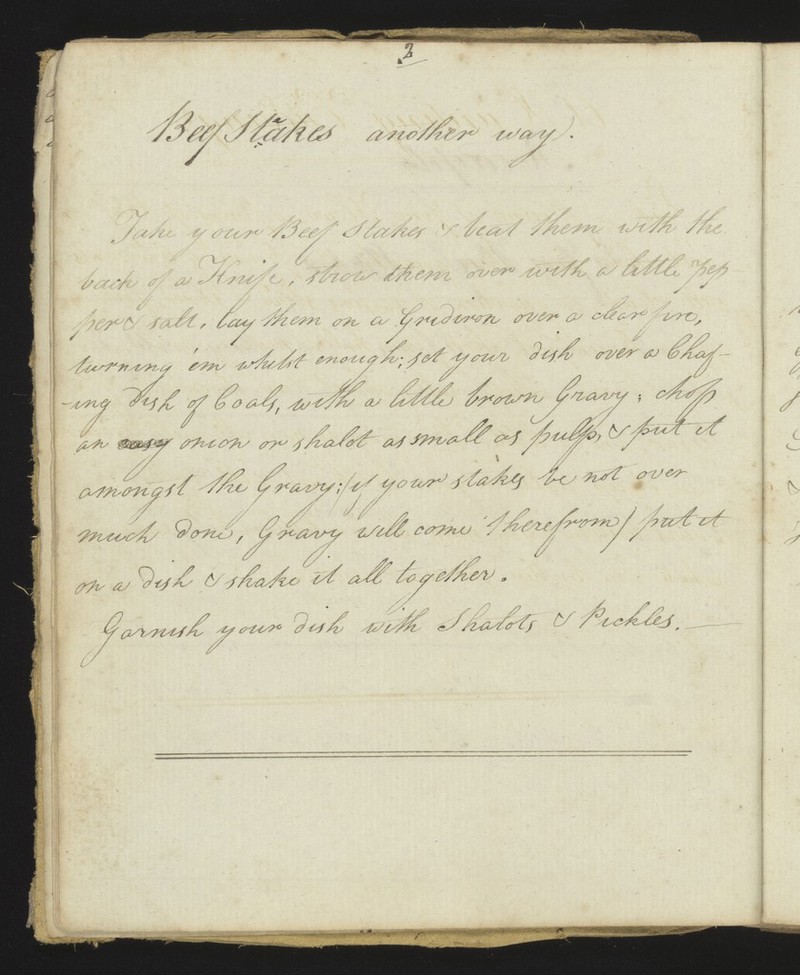 2
Beef Stakes another way.
Take your Beef Stakes & beat them with the
back of a Knife, strow them over with a little pep-
per & salt, lay them on a Gridiron over a clear fire,
turning 'em whilst enough; set your dish over a Chaf-
-ing Dish of Coals, with a little brown Gravy; chop
an onion or shalot as small as pulp, & put it
amongst the Gravy: (if your stakes be not over
much done, Gravy will come therefrom) put it
on a dish & shake it all together.
Garnish your dish with Shalots & Pickles.